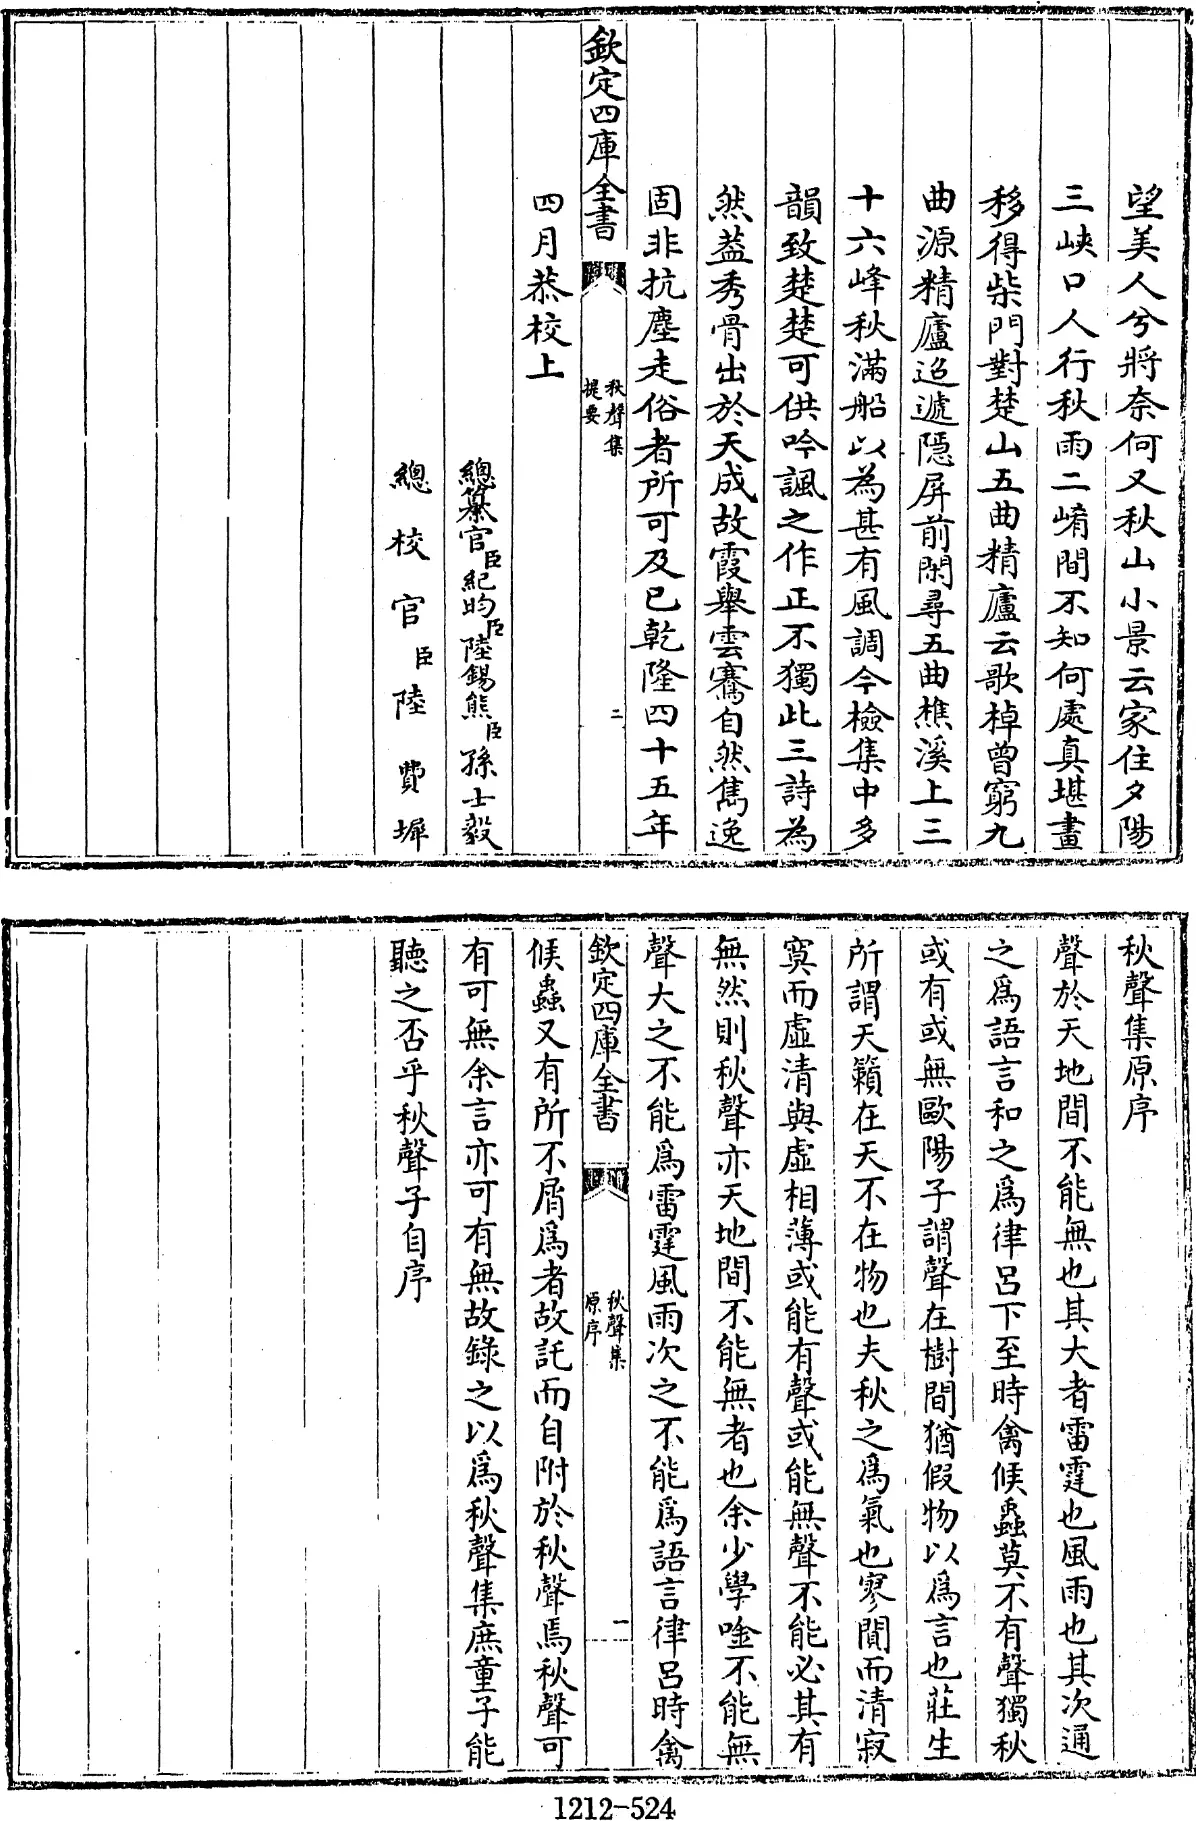 望美人兮將奈何又秋山小景云家住夕陽
三峽口人行秋雨二崤間不知何處真堪畫
移得柴門對楚山五曲精廬云歌棹曾窮九
曲源精廬迢遞隱屏前閑尋五曲樵溪上三
十六峰秋滿船以為甚有風調今檢集中多
韻致楚楚可供吟諷之作正不獨此三詩為
然葢秀骨出於天成故霞舉雲騫自然雋逸
固非抗塵走俗者所可及已乾隆四十五年
欽定四庫全書
秋聲集
提要
二
四月恭校上
總纂官臣紀昀臣陸錫熊臣孫士毅
總校官臣陸費墀
秋聲集原序
聲於天地間不能無也其大者雷霆也風雨也其次通
之爲語言和之爲律呂下至時禽候蟲莫不有聲獨秋
或有或無歐陽子謂聲在樹間猶假物以爲言也莊生
所謂天籟在天不在物也夫秋之爲氣也寥閴而清寂
寞而虛清與虛相薄或能有聲或能無聲不能必其有
無然則秋聲亦天地間不能無者也余少學唫不能無
聲大之不能爲雷霆風雨次之不能爲語言律呂時禽
欽定四庫全書
秋聲集
原序
一
候蟲又有所不屑爲者故託而自附於秋聲焉秋聲可
有可無余言亦可有無故錄之以爲秋聲集庶童子能
聽之否乎秋聲子自序
1212-524